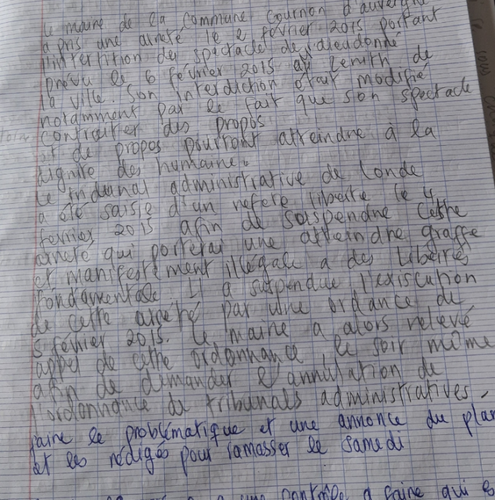 Le maire de la commune Cournon d'auvergne
a pris une arreté le 2 fevrier 2015 portant
l'interdition des spectacle de daleudonné
prévu le 6 février 2015 au zenith de
la ville. Son interdiction etait modifié
notamment par le fait que son spectacle
contreutier des propos
et de propos pourront atteindre à la
dignité des humaine.
Le tribunal administrative de londe
a été saisie d'un réfère liberté le 4
fevrier 2015 afin de suspendre cette
arreté qui porterai une atteindre graffe
et manifestement illégale a des libertés
fondamentale il a suspendue l'exiscution
de cette arreté par une ordance de
5 fevrier 2015. Le maire a alors relevé
appel de cette ordonnance le soir même
afin de demander l'annulation de
l'ordonnance de tribunals administratives.
faire le problèmatique et une annonce du plan
et les rédigés pour ramasser le samedi
qui